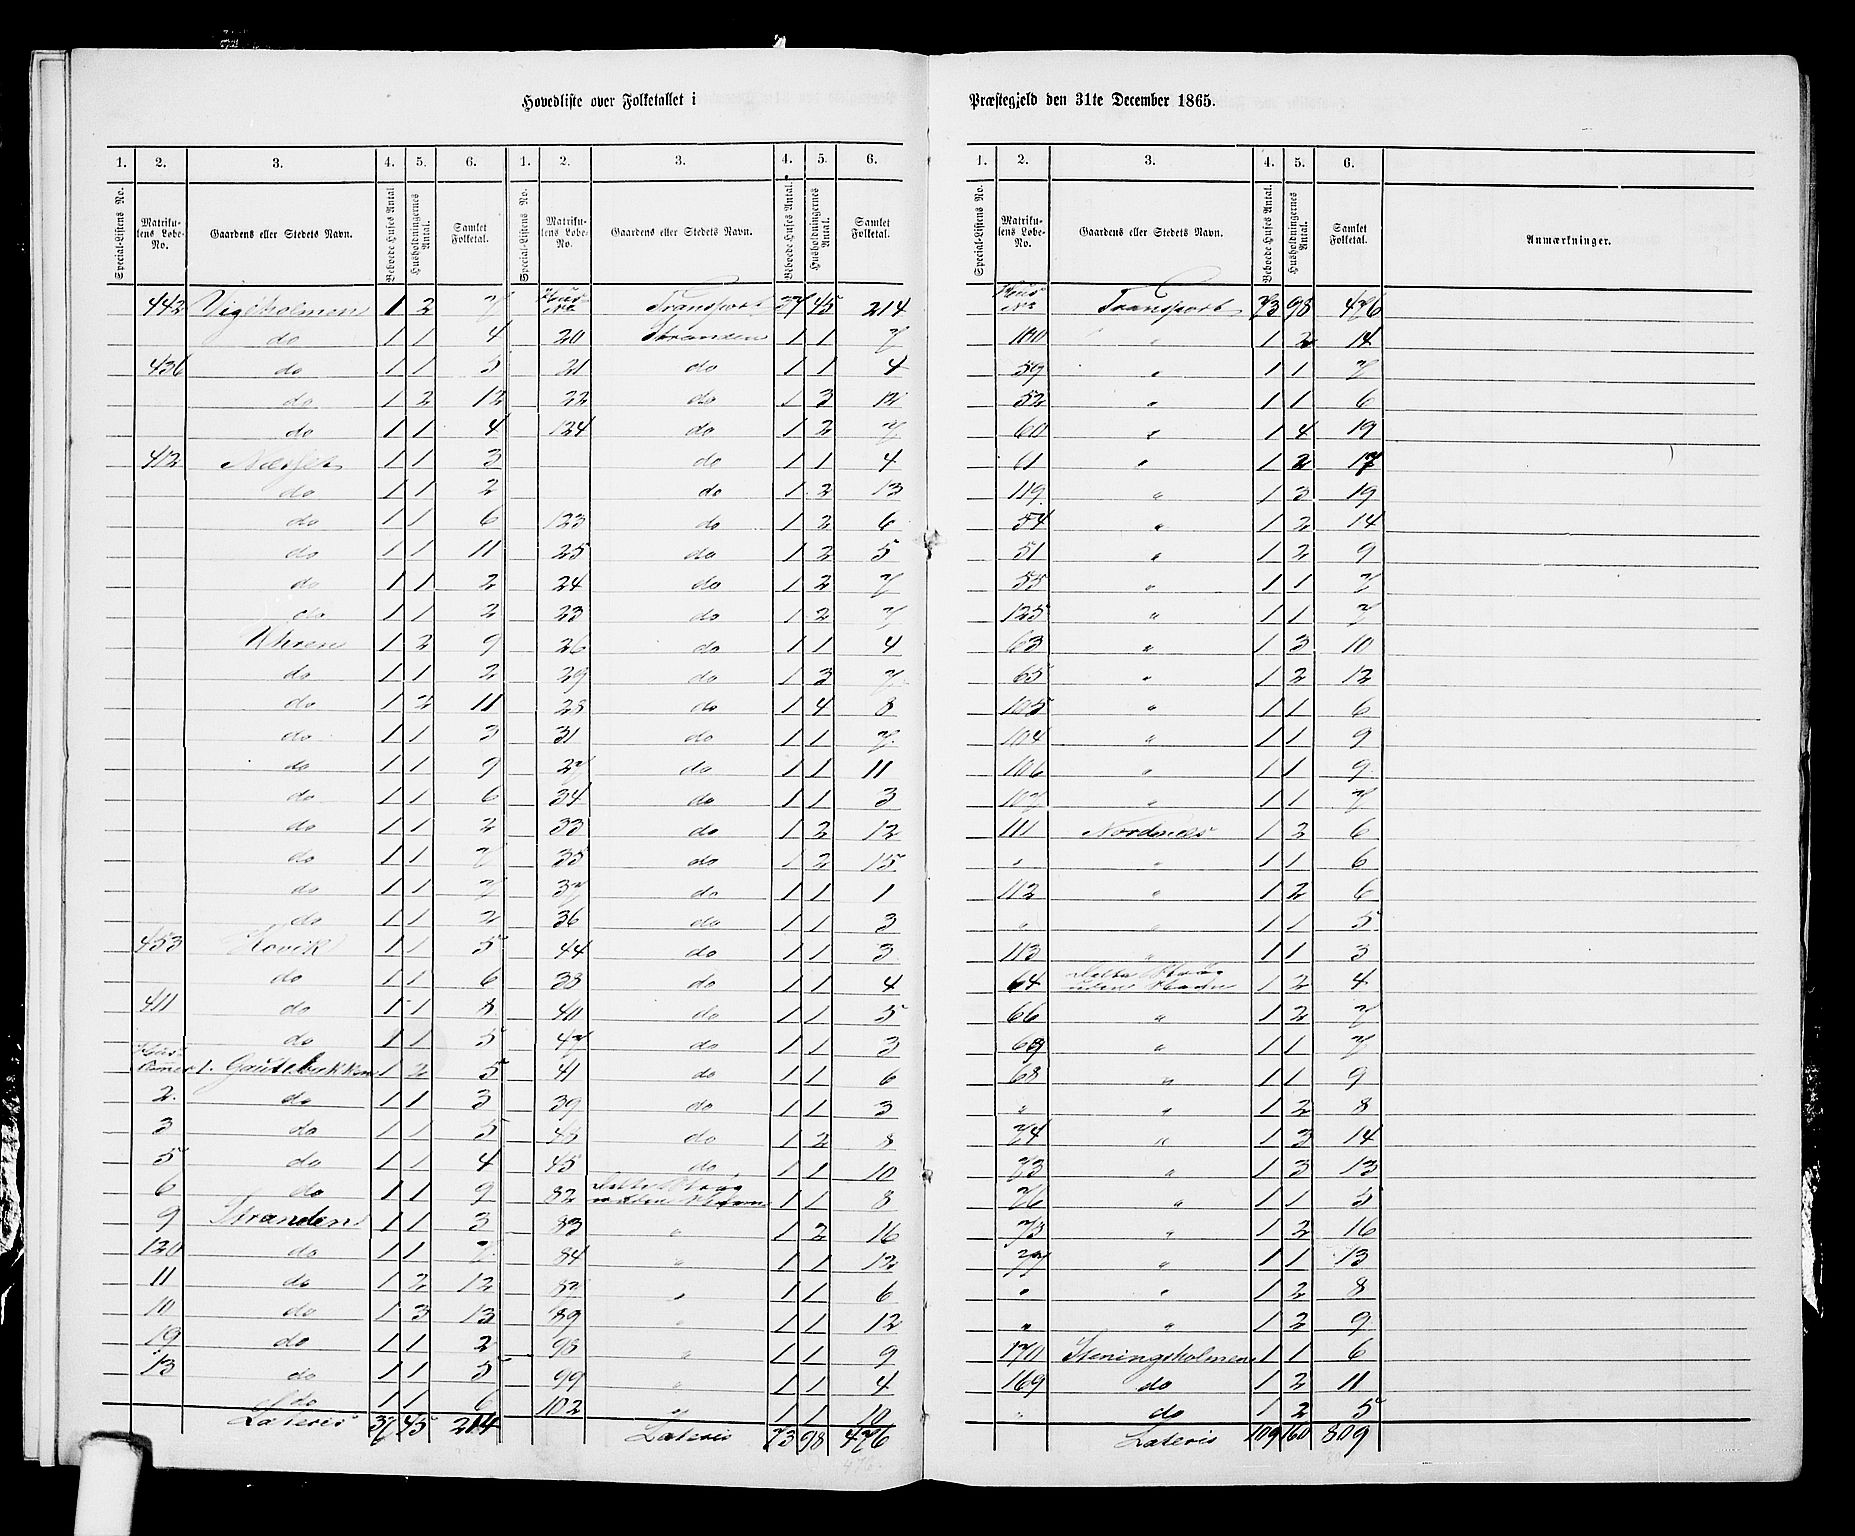 Hovedliste over Folketallet i Præstegjeld den 31te December 1865.
1. 2. 3. 4. 5. 6. 1. 2. 3. 4. 5. 6.
Special-Listens No. Matrikulens Løbe-No. Gaardens eller Stedets Navn. Beboede Huses Antal. Husholdningernes Antal. Samlet Folketal. Special-Listens No. Matrikulens Løbe-No. Gaardens eller Stedets Navn. Beboede Huses Antal. Husholdningernes Antal. Samlet Folketal.
442 Vigeholmen 1 2 7 Huus No Transport 37 45 214
do 1 1 4 20 Stranden 1 1 7
436 do 1 1 5 21 do 1 1 4
do 1 2 12 22 do 1 3 12
do 1 1 4 124 do 1 2 7
412 1 1 3 do 1 1 4
do 1 1 2 do 1 2 13
do 1 1 6 123 do 1 2 6
do 1 1 11 25 do 1 2 5
do 1 1 2 24 do 1 2 7
do 1 1 2 23 do 1 2 7
1 2 9 26 do 1 1 4
do 1 1 2 29 do 1 3 7
do 1 2 11 28 do 1 4 8
do 1 1 3 31 do 1 1 7
do 1 1 9 27 do 1 1 11
do 1 1 6 34 do 1 1 3
do 1 1 2 33 do 1 2 12
do 1 1 7 35 do 1 2 15
do 1 1 7 37 do 1 1 1
do 1 1 2 36 do 1 1 3
453 Hovik 1 1 5 44 do 1 1 3
do 1 1 6 38 do 1 1 4
411 do 1 1 8 40 do 1 1 5
do 1 1 5 47 do 1 1 3
1. 1 2 5 41 do 1 1 6
2. do 1 1 3 39 do 1 1 3
3 do 1 1 5 43 do 1 2 8
5 do 1 1 4 45 do 1 1 10
6 do 1 1 9 82 1 1 8
9 Stranden 1 1 3 83 " 1 2 16
120 do 1 1 7 84 " 1 1 12
11 do 1 2 12 82 " 1 1 6
10 do 1 3 13 89 " 1 1 12
19 do 1 1 2 98 " 1 1 9
13 do 1 1 5 99 " 1 1 4
do 1 1 6 102 " 1 1 10
Lateris 37 45 214 Lateris 73 98 476
476
1. 2. 3. 4. 5. 6.
Special-Listens No. Matrikulens Løbe-No. Gaardens eller Stedets Navn. Beboede Huses Antal. Husholdningernes Antal. Samlet Folketal. Anmærkninger.
Huus No Transport 73 98 476
100 " 1 2 14
59 " 1 1 7
52 " 1 1 6
60 " 1 4 19
61 " 1 2 17
119 " 1 3 19
54 " 1 2 14
51 " 1 2 9
55 " 1 1 7
125 " 1 1 7
63 " 1 3 10
65 " 1 2 12
105 " 1 1 6
104 " 1 1 9
106 " 1 1 9
107 " 1 1 7
111 Nordnes 1 2 6
" " 1 1 6
112 " 1 2 6
" " 1 1 5
113 " 1 1 3
64 1 2 4
66 " 1 2 7
69 " 1 1 7
68 " 1 1 9
" " 1 2 8
74 " 1 3 14
73 " 1 3 13
76 " 1 1 5
75 " 1 2 16
77 " 1 1 13
" " 1 2 8
" " 1 2 9
170 Steningsholmen 1 1 6
169 do 1 2 11
" do 1 2 5
Lateris 109 160 809